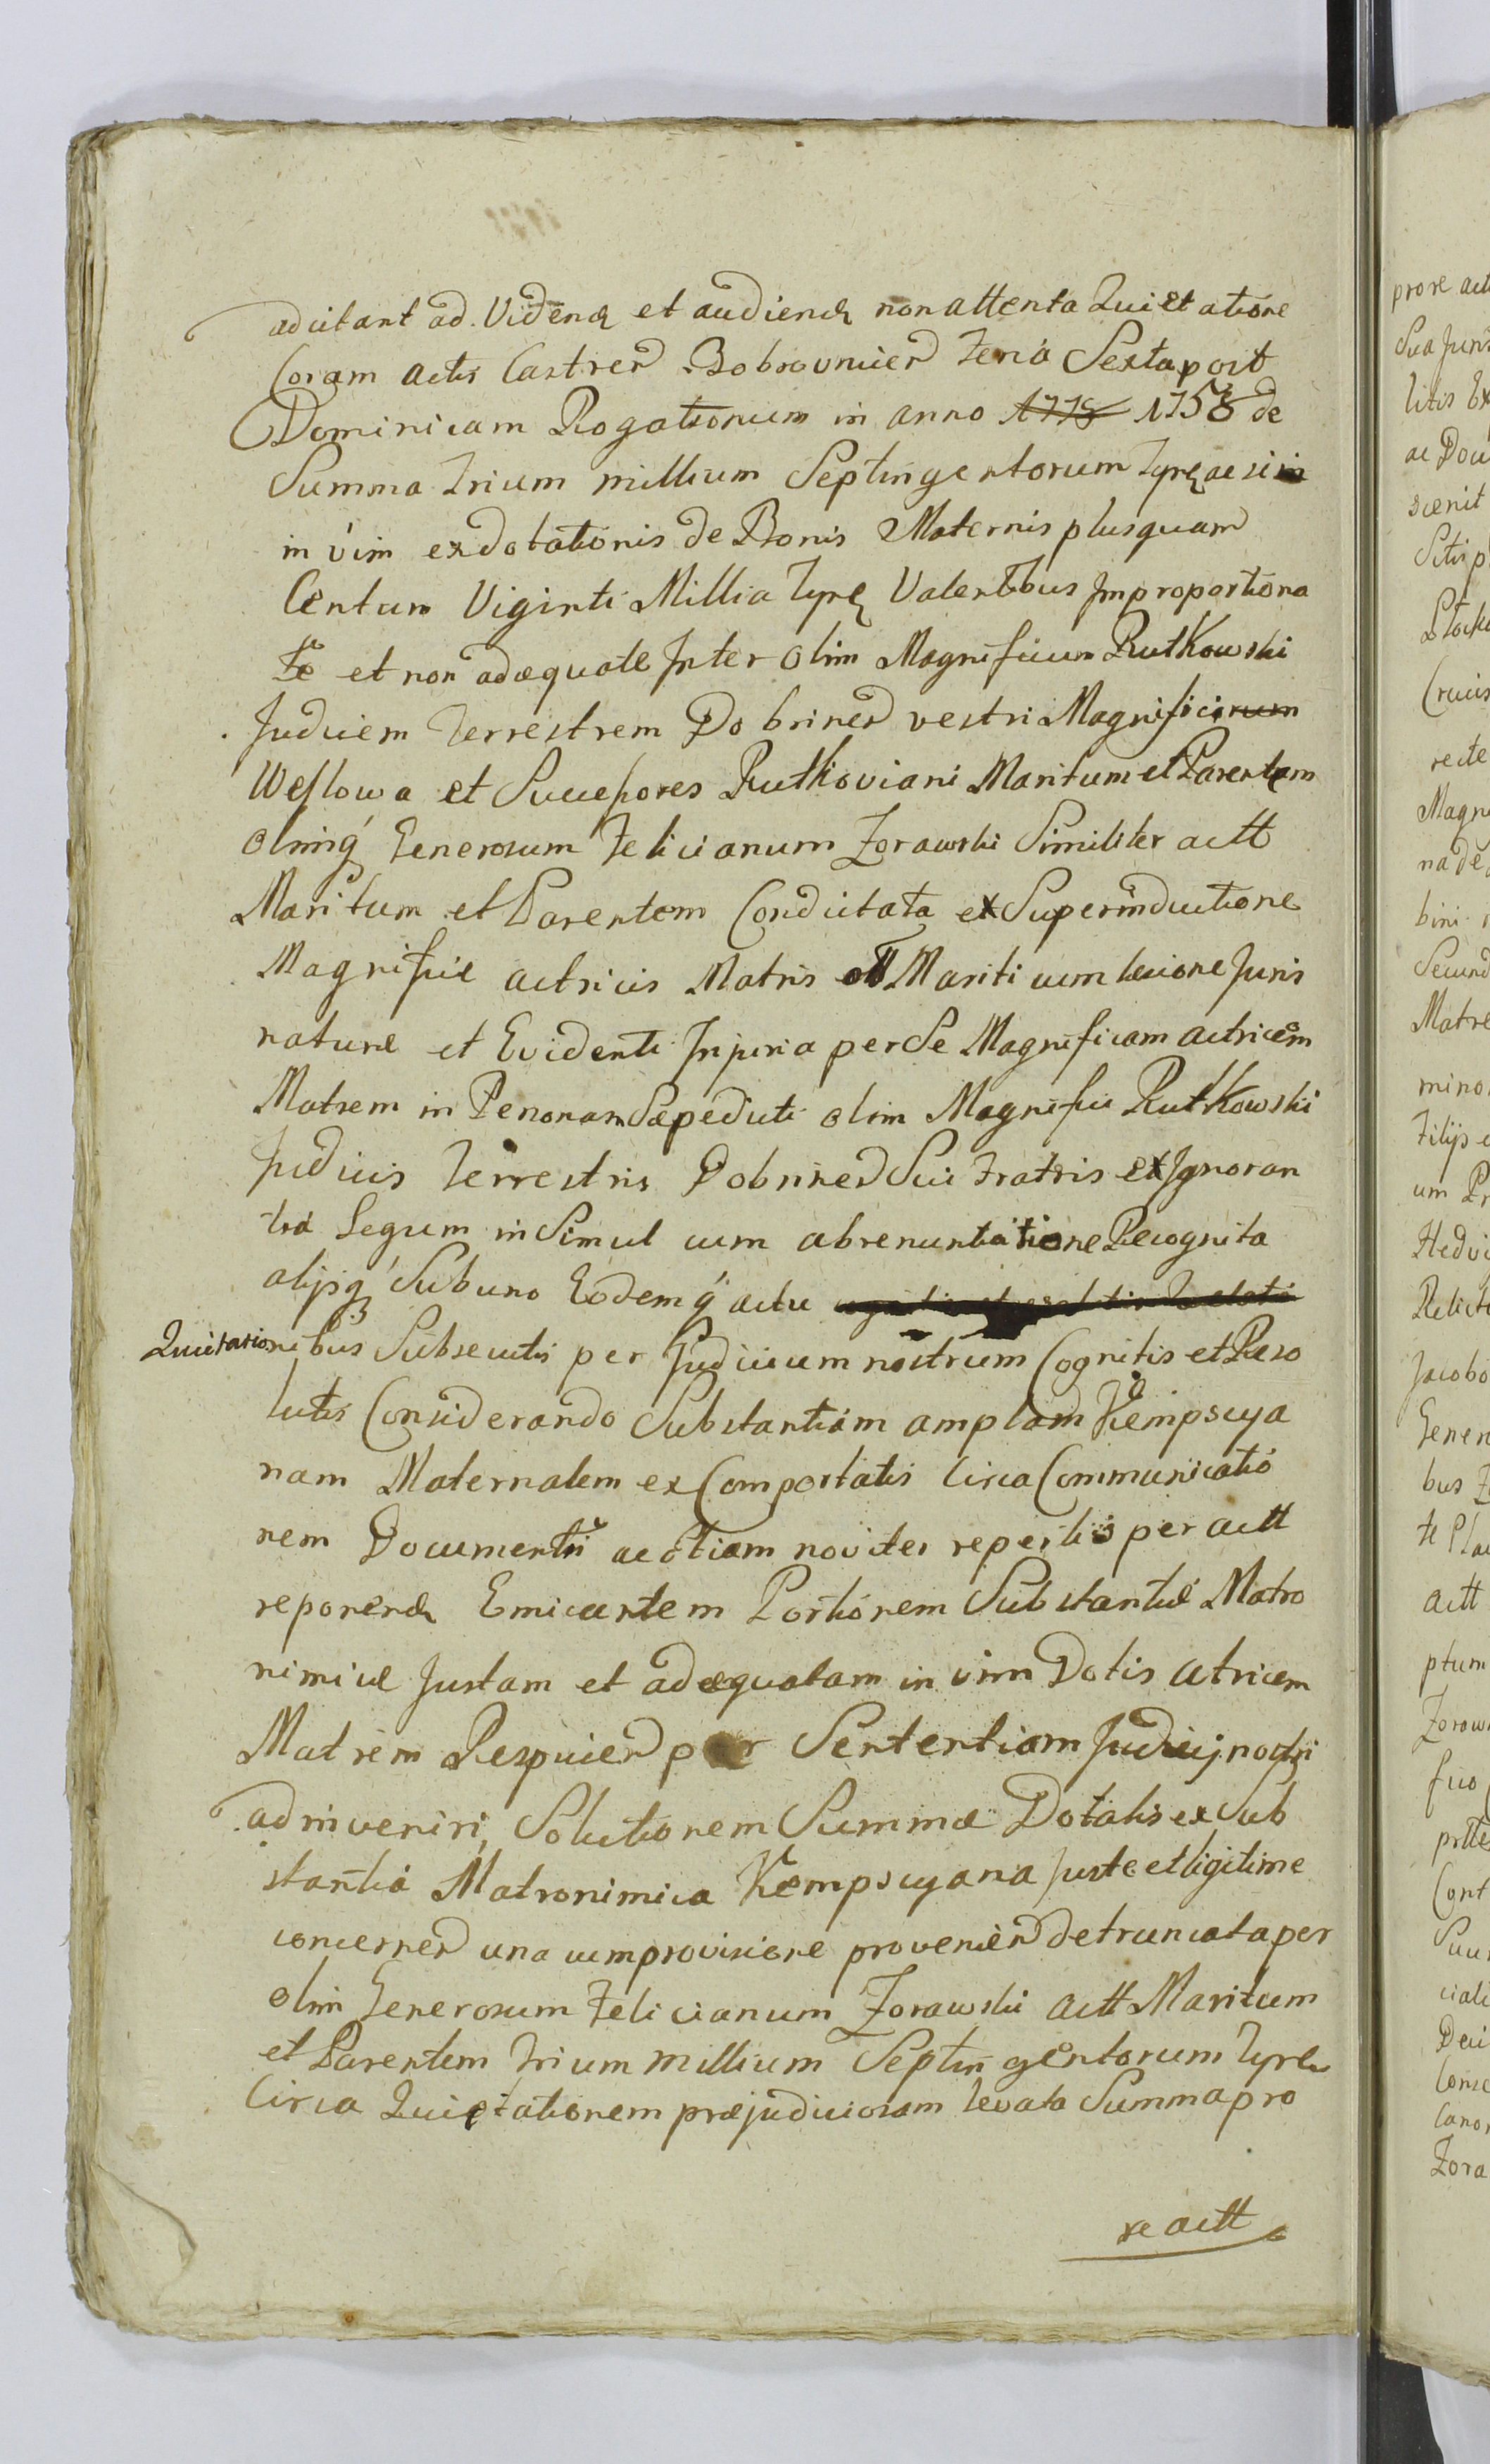 adcitant ad Videnḍ et audienḍ non attenta Quietatione
Coram actis Castren Bobrovnicen Feria Sexta post
Dominicam Rogationum in anno 1778 1758 de
Summa Trium millium Septingentorum Tynf ac si
in vim exdotationis de Bonis Maternis plusquam
Centum Viginti Millia Tynf Valentibus Improportiona
te et non adæquate Inter olim Magnificum Rutkowski
Judicem Terrestrem Dobrinen vestri Magnificorum
Wesslowa et Successores Rutkoviani Maritum et Parentem
olimq́ Generosum Felicianum Zorawski Similiter actt
Maritum et Parentem Condictata ex Superinductione
Magnificæ actricis Matris Mariti cum læsione Juris
naturæ et Evidenti Injuria per Se Magnificam actricem
Matrem in Personam Sæpedicti olim Magnifici Rutkowski
Judicis Terrestris Dobrinen Sui Fratris ex Ignoran
tia Legum in Simul cum abrenuntiatione Recognita
alijsq́ Sub uno Eodemq́ actu
Quietationibus Subsecutis per Judicium nostrum Cognitis et Reso
lutis Considerando Substantiam amplam Kempscya
nam Maternalem ex Comportatis Circa Communicatio
nem Documentū ac etiam noviter repertis per actt
reponenḍ Emicantem Portionem Substantiæ Matro
nimicæ Justam et adæquatam in vim Dotis actricem
Matrem Respicien per Sententiam Judicij nostri
adinveniri, Solutionem Summæ Dotalis ex Sub
stantia Matronimica Kempscyana Juste et ligitime
concernen una cum provisione provenien detruncata per
olim Generosum Felicianum Zorawski actt Maritum
et Parentem Trium millium Septingentorum Tynf
Circa Quietationem præjudiciosam levata Summa pro
se actt
prore act
Sua Juri
litis Ex
ac Dou
scenit
Sitis p
Stock
Crucis
recte
Magn
na de
bini
Secund
Matre
mino
Filijs
um Pr
Hedvi
Relict
Jacobo
Gener
bus Z
te Pla
actt
ptum
Zoraw
fuo
prtte
Cont
Suu
ciali
Deci
Conse
Canon
Zora